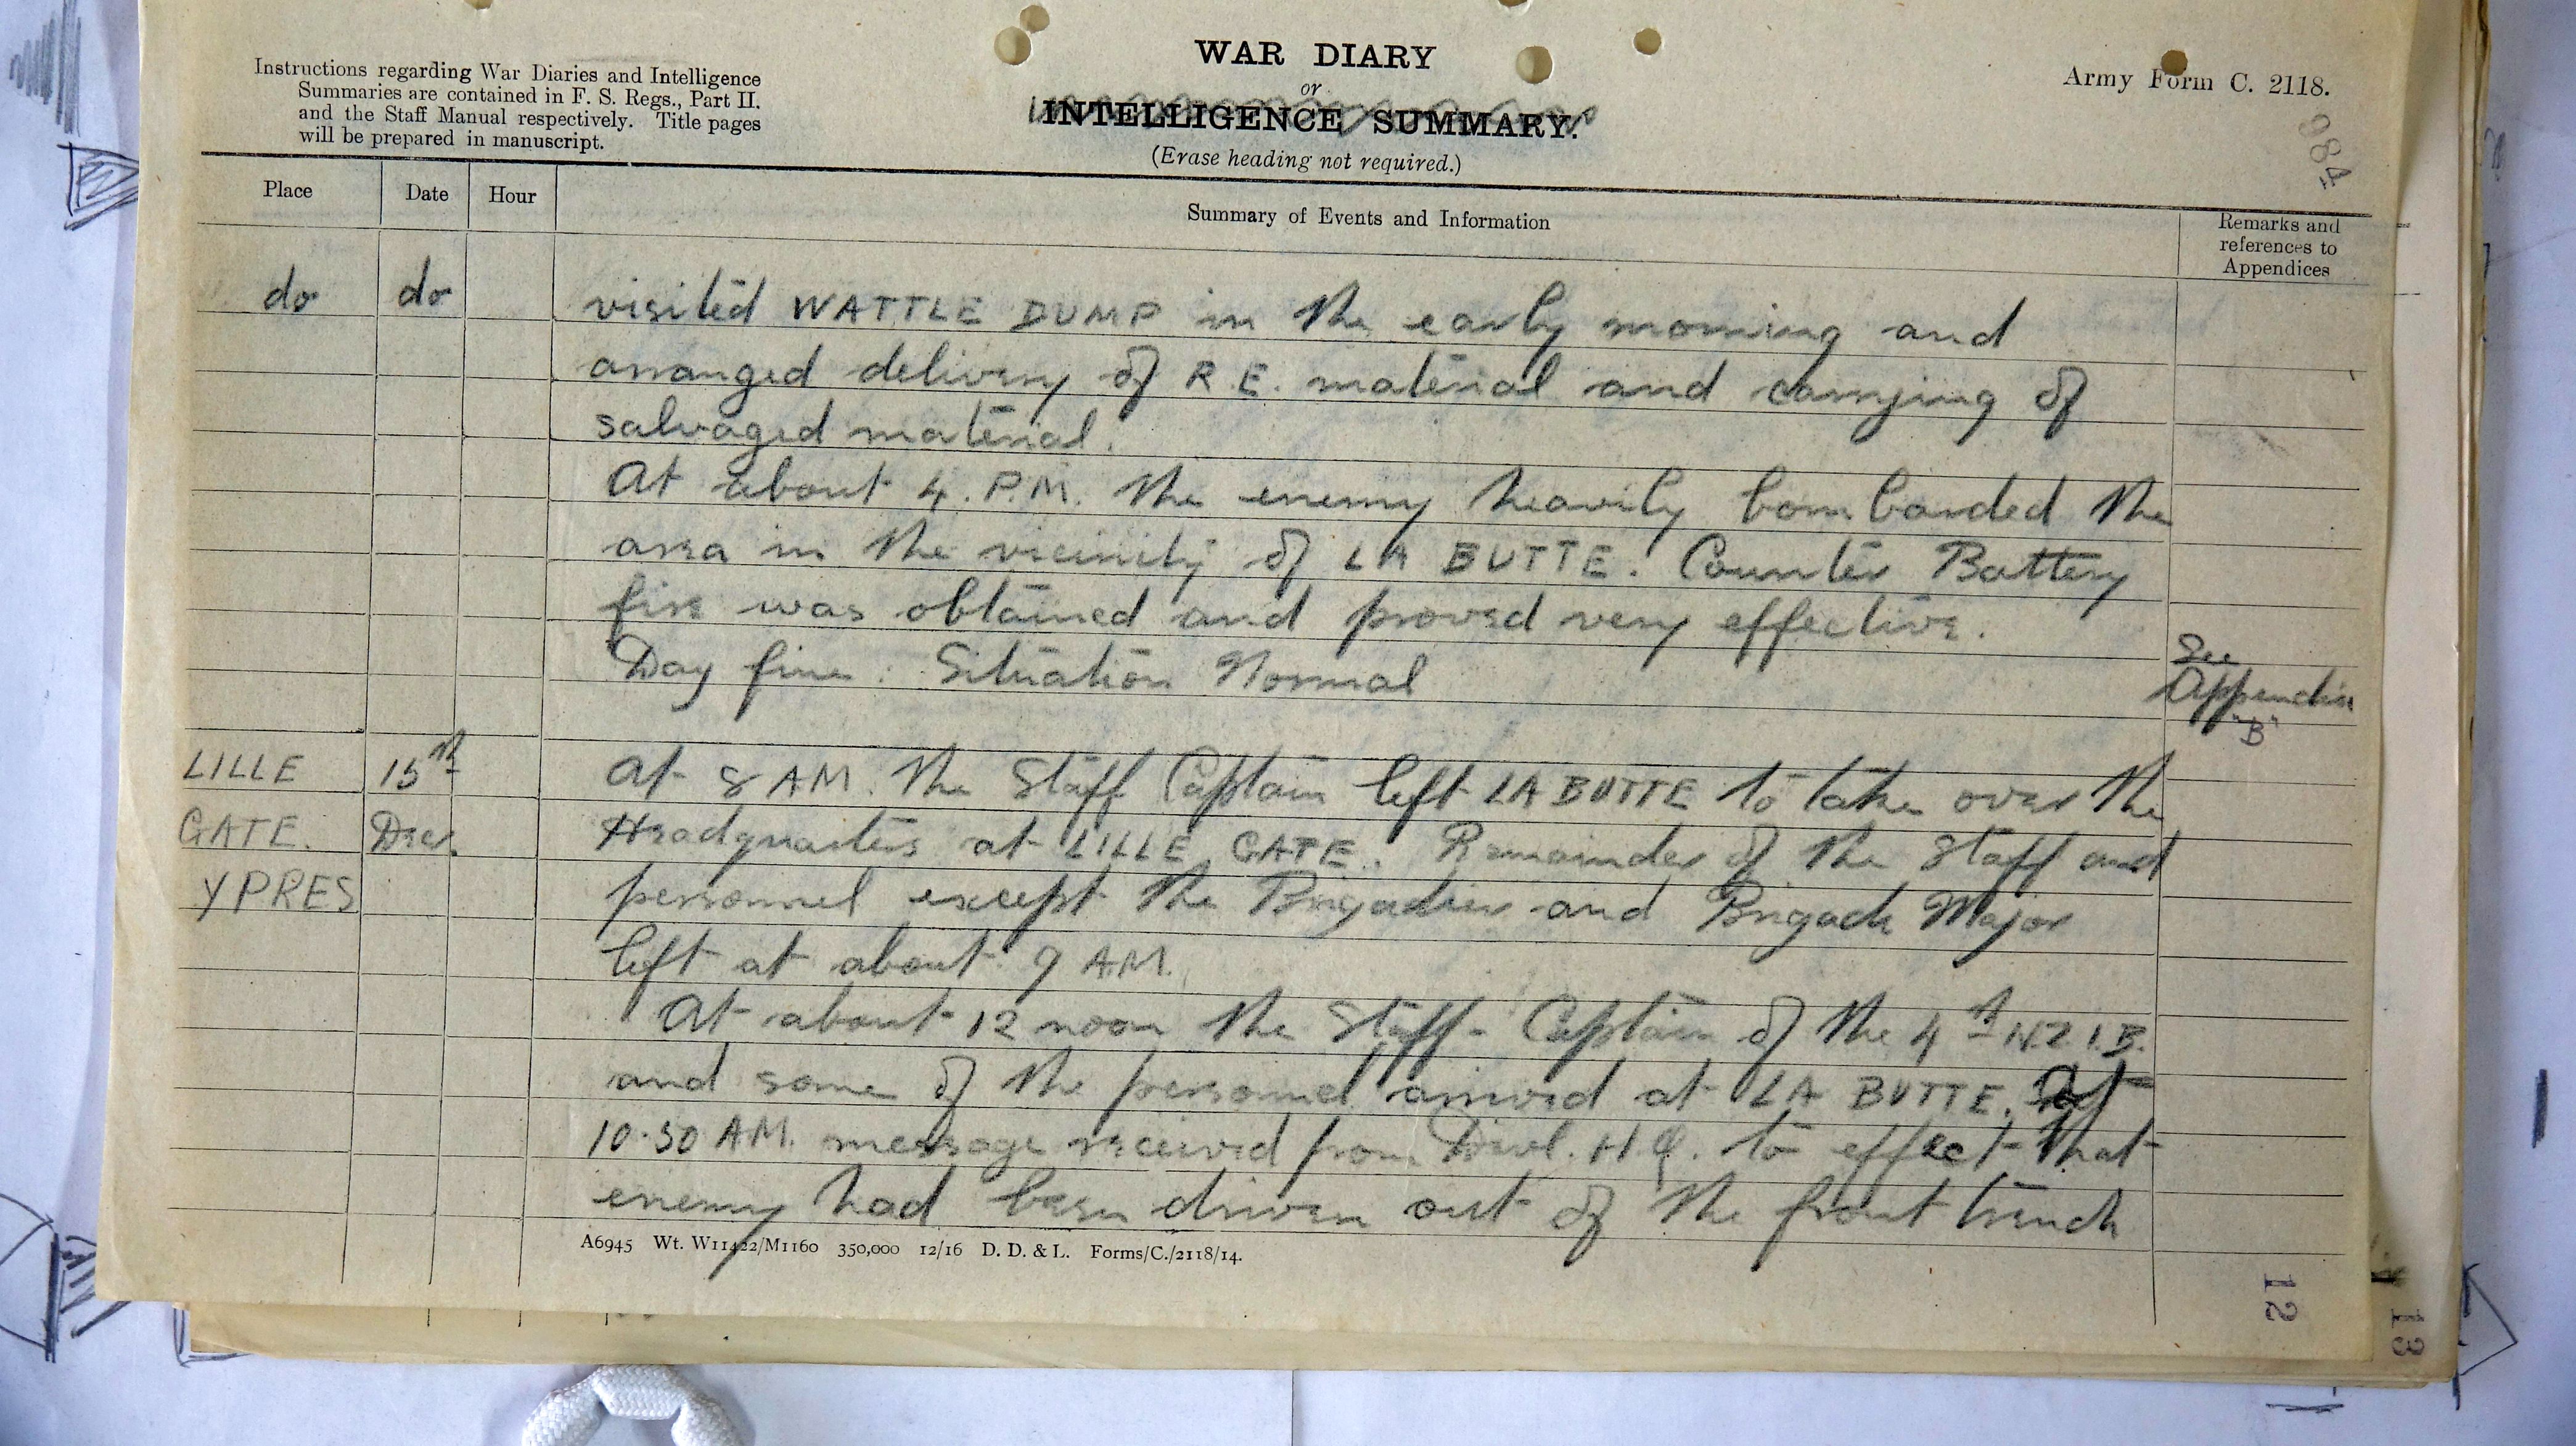 Instructions regarding War Diaries and Intelligence
Summaries are contained in F. S. Regs., Part II.
and the Staff Manual respectively. Title pages
will be prepared in manuscript.
WAR DIARY
or
INTELLIGENCE SUMMARY.
(Erase heading not required.)
Army Form C. 2118.
984
Place Date Hour Summary of Events and Information Remarks and references to Appendices
do do visited WATTLE DUMP in the early morning and
arranged delivery of R.E. material and carrying of
salvaged material.
At about 4. P.M. the enemy heavily bombarded the
area in the vicinity of LA BUTTE. Counter Battery
fire was obtained and proved very effective.
Day fine: Situation Normal
See
Appendix
"B"
LILLE 15th At 8 AM. the Staff Captain left LA BUTTE to take over the
GATE. Dec. Headquarters at LILLE GATE. Remainder of the Staff and
YPRES personnel except the Brigadier and Brigade Major
left at about 9 A.M.
At about 12 noon the Staff Captain of the 4th N.Z.I.B.
and some of the personnel arrived at LA BUTTE. At
10.30 AM. message received from Divl. H.Q. to effect that
enemy had been driven out of the front trench
A6945 Wt. W11422/M1160 350,000 12/16 D. D. & L. Forms/C./2118/14.
12
13